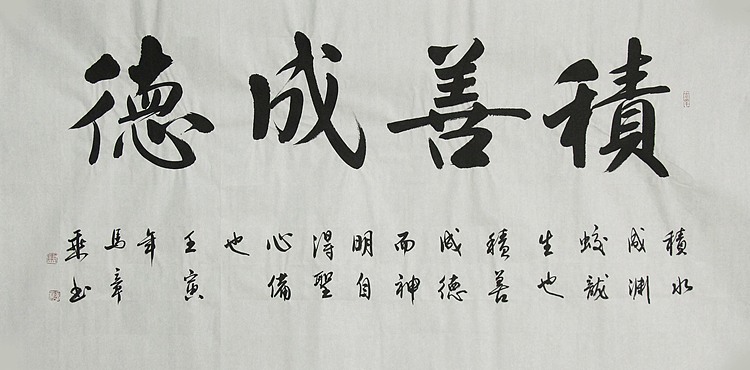 積善成德
積水
成渊
蛟龍
生也
積善
成德
而神
明自
得聖
心備
也
壬寅
年
馬章
乘书